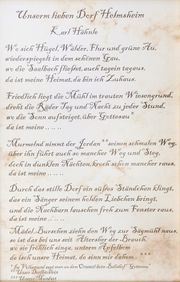 Unserm lieben Dorf Helmsheim
Karl Hähnle
Wo sich Hügel, Wälder, Flur und grüne Au,
wiederspiegeln in dem schönen Gau,
wo die Saalbach fließet, auch tagein tagaus,
da ist meine Heimat, da bin ich Zuhaus.
Friedlich liegt die Mühl im trauten Wiesengrund,
dreht die Räder Tag und Nacht zu jeder Stund,
wo die Senn aufsteiget, über
da ist meine ... . .
Murmelnd nimmt der Jordan** seinen schmalen Weg,
über ihn führt auch so mancher Weg und Steg,
doch in dunklen Nächten, kroch schon mancher raus,
da ist meine ... . .
Durch das stille Dorf ein süßes Ständchen klingt,
das ein Sänger seinem holden Liebchen bringt,
und die Nachbarn lauschen froh zum Fenster raus,
da ist meine ... . .
Mädel, Burschen ziehn den Weg zur Sägmühl naus,
so ist das bei uns seit Altersher der Brauch,
wo sie fröhlich singen, unterm Apfelbaum
da isch unsre Heimat, do sinn mir daham. ***